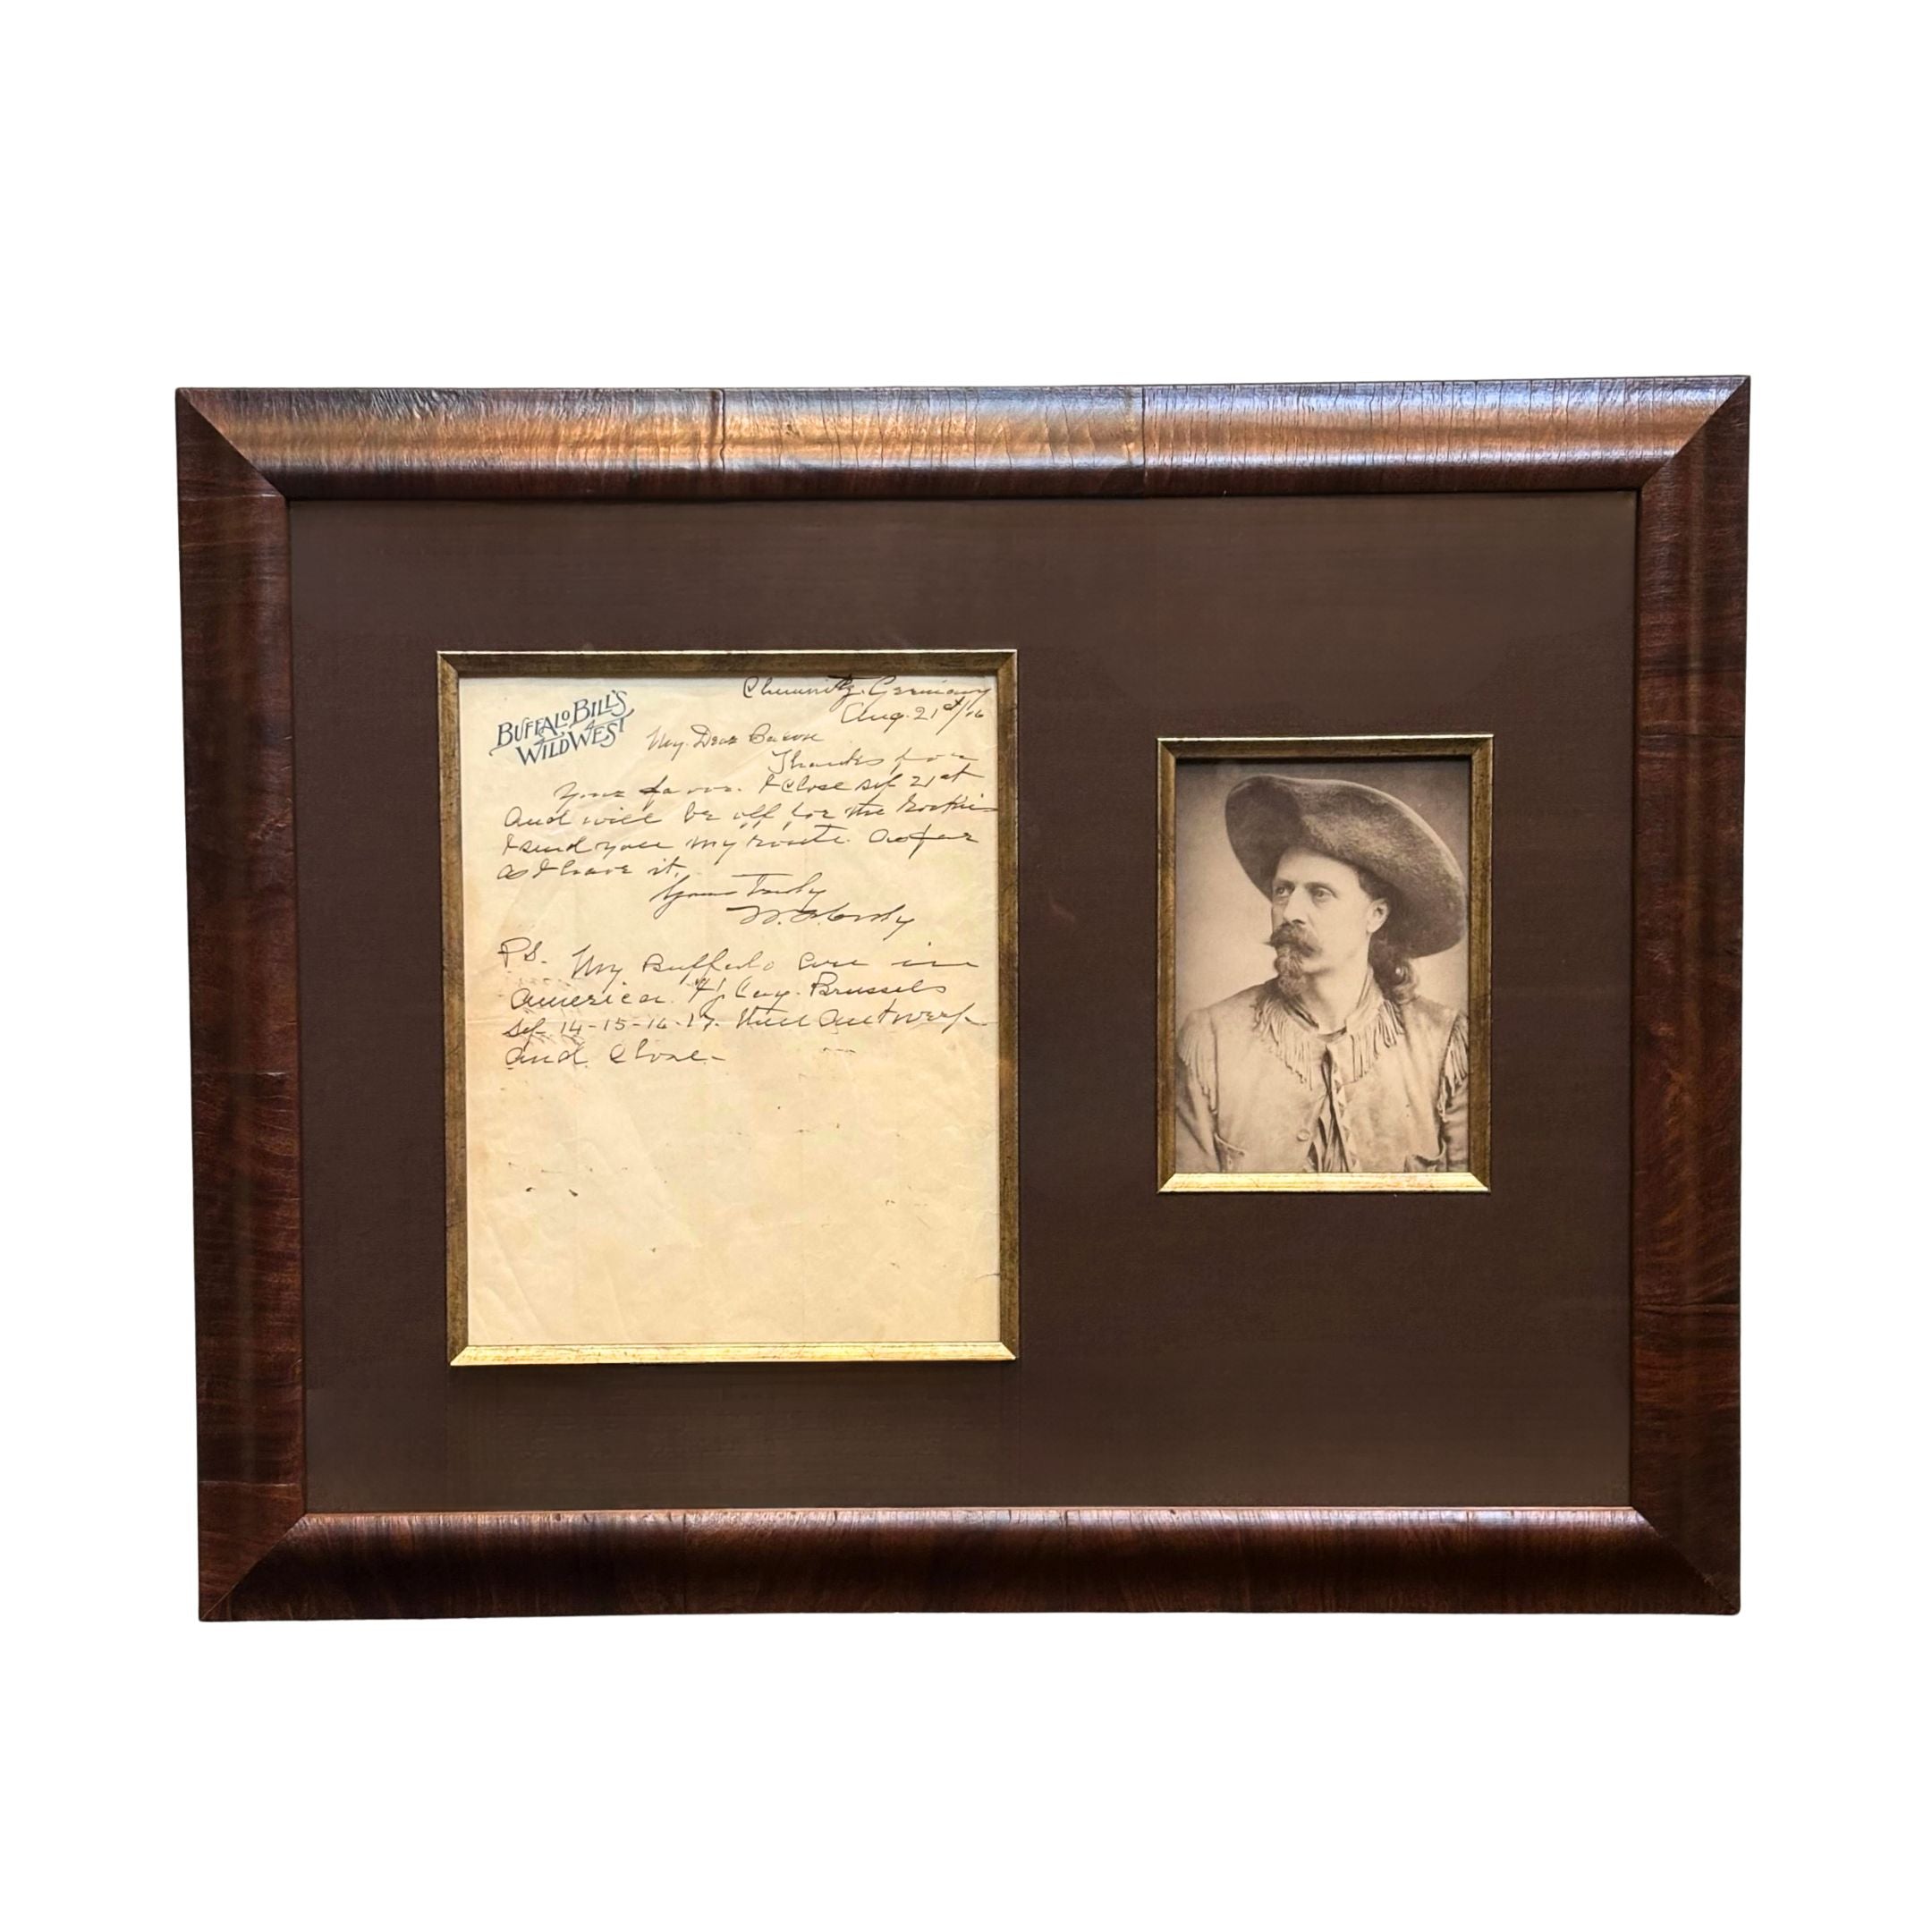 BUFFALO BILL'S
WILD WEST
Chemnitz. Germany
Aug. 21st/06
My Dear Bacon
Thanks for
your favor. I Close Sep 21st
And will be off for the Rockies
I send you my route. As far
as I have it.
Yours Truly
W. F. Cody
PS. My Buffalo are in
America. Brussels
Sep 14-15-16-17. then Antwerp
and Close-